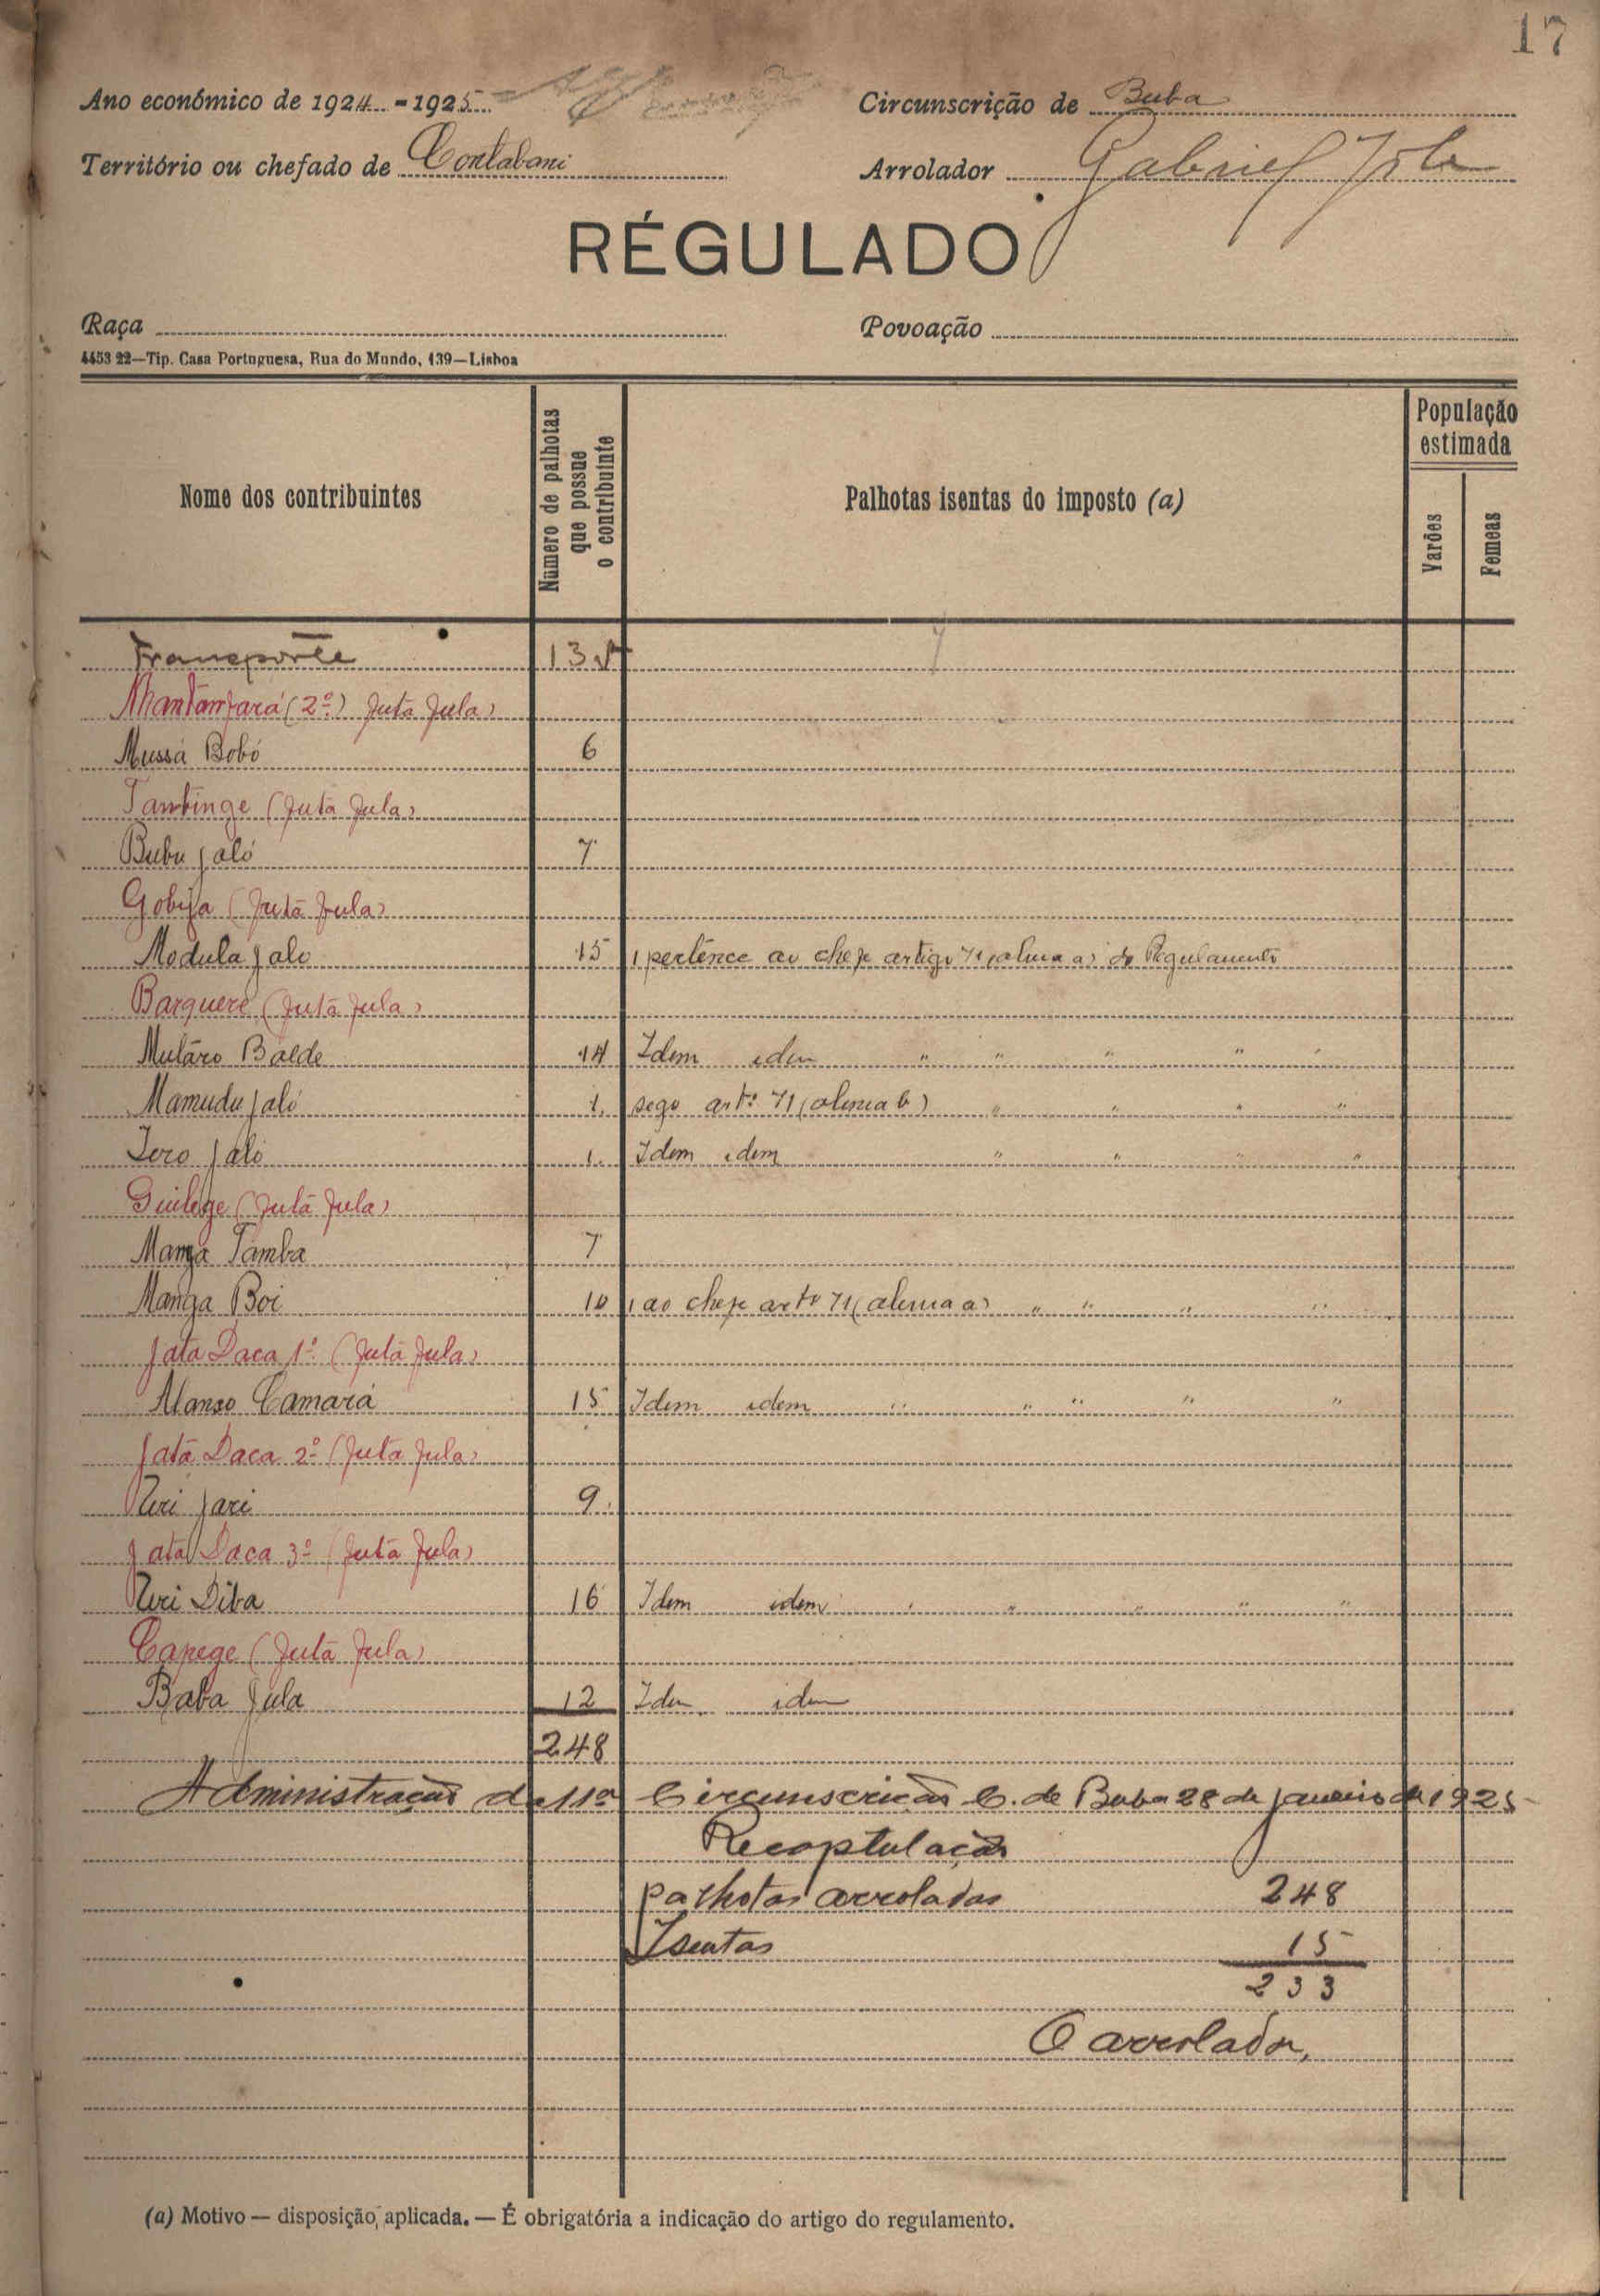 17
Ano económico de 1924 - 1925
Circunscrição de Buba
Território ou chefado de Contabani
Arrolador Gabriel
RÉGULADO
Raça
Povoação
4453 22—Tip. Casa Portuguesa, Rua do Mundo, 139—Lisboa
Nome dos contribuintes
Número de palhotas que possue o contribuinte
Palhotas isentas do imposto (a)
População estimada
Varões
Femeas
Transporte 13
(2º) Futa Fula)
Mussá Bobó 6
Tambinge (Futa Fula)
Bubu Jaló 7
Gobija (Futã Fula)
Modula Jalo 15 1 pertence ao chefe artigo 71 (alinea a) do Regulamento
Barquere (Futã Fula)
Mutáro Balde 14 Idem idem " " " " "
Mamudu Jaló 1. sego artº 71 (alinea b) " " " "
Iero Jaló 1. Idem idem " " " "
Guilege (Futã Fula)
Manga Tamba 7
Manga Boi 10 1 ao chefe artº 71 (alinea a) " " " "
Jata Daca 1º (Futã Fula)
Alanso Camará 15 Idem idem " " " " "
Jatá Daca 2º (Futa Fula)
Uri Jari 9.
Jata Daca 3º (Futa Fula)
Uri Diba 16 Idem idem " " " " "
Capege (Futã Fula)
Baba Jula 12 Idem idem
248
Administração da 11ª Circunscrição C. de Buba 28 de Janeiro de 1925
Recaptulação
palhotas arroladas 248
Isentas 15
233
O arrolador,
(a) Motivo — disposição aplicada. — É obrigatória a indicação do artigo do regulamento.